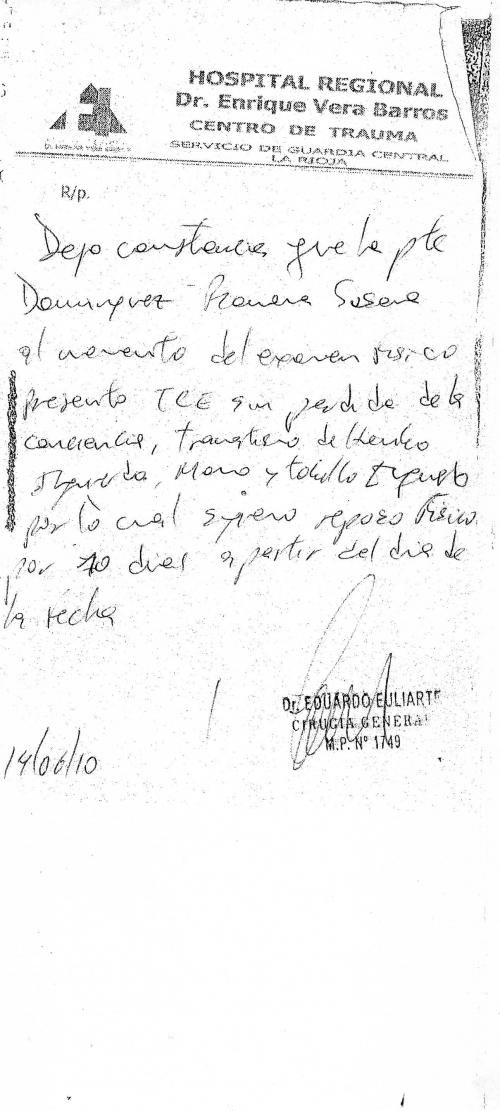 HOSPITAL REGIONAL
Dr. Enrique Vera Barros
CENTRO DE TRAUMA
SERVICIO DE GUARDIA CENTRAL
LA RIOJA
R/p.
Dejo constancia que la pte
Dominguez Susana
al momento del examen fisico
presento TCE sin perdida de la
conciencia, de
Izquierda, Mano y tobillo
por lo cual sugiero reposo Fisico
por 10 dias a partir del dia de
la fecha
Dr. EDUARDO EULIARTE
CIRUGIA GENERAL
M.P. Nº 1749
14/06/10